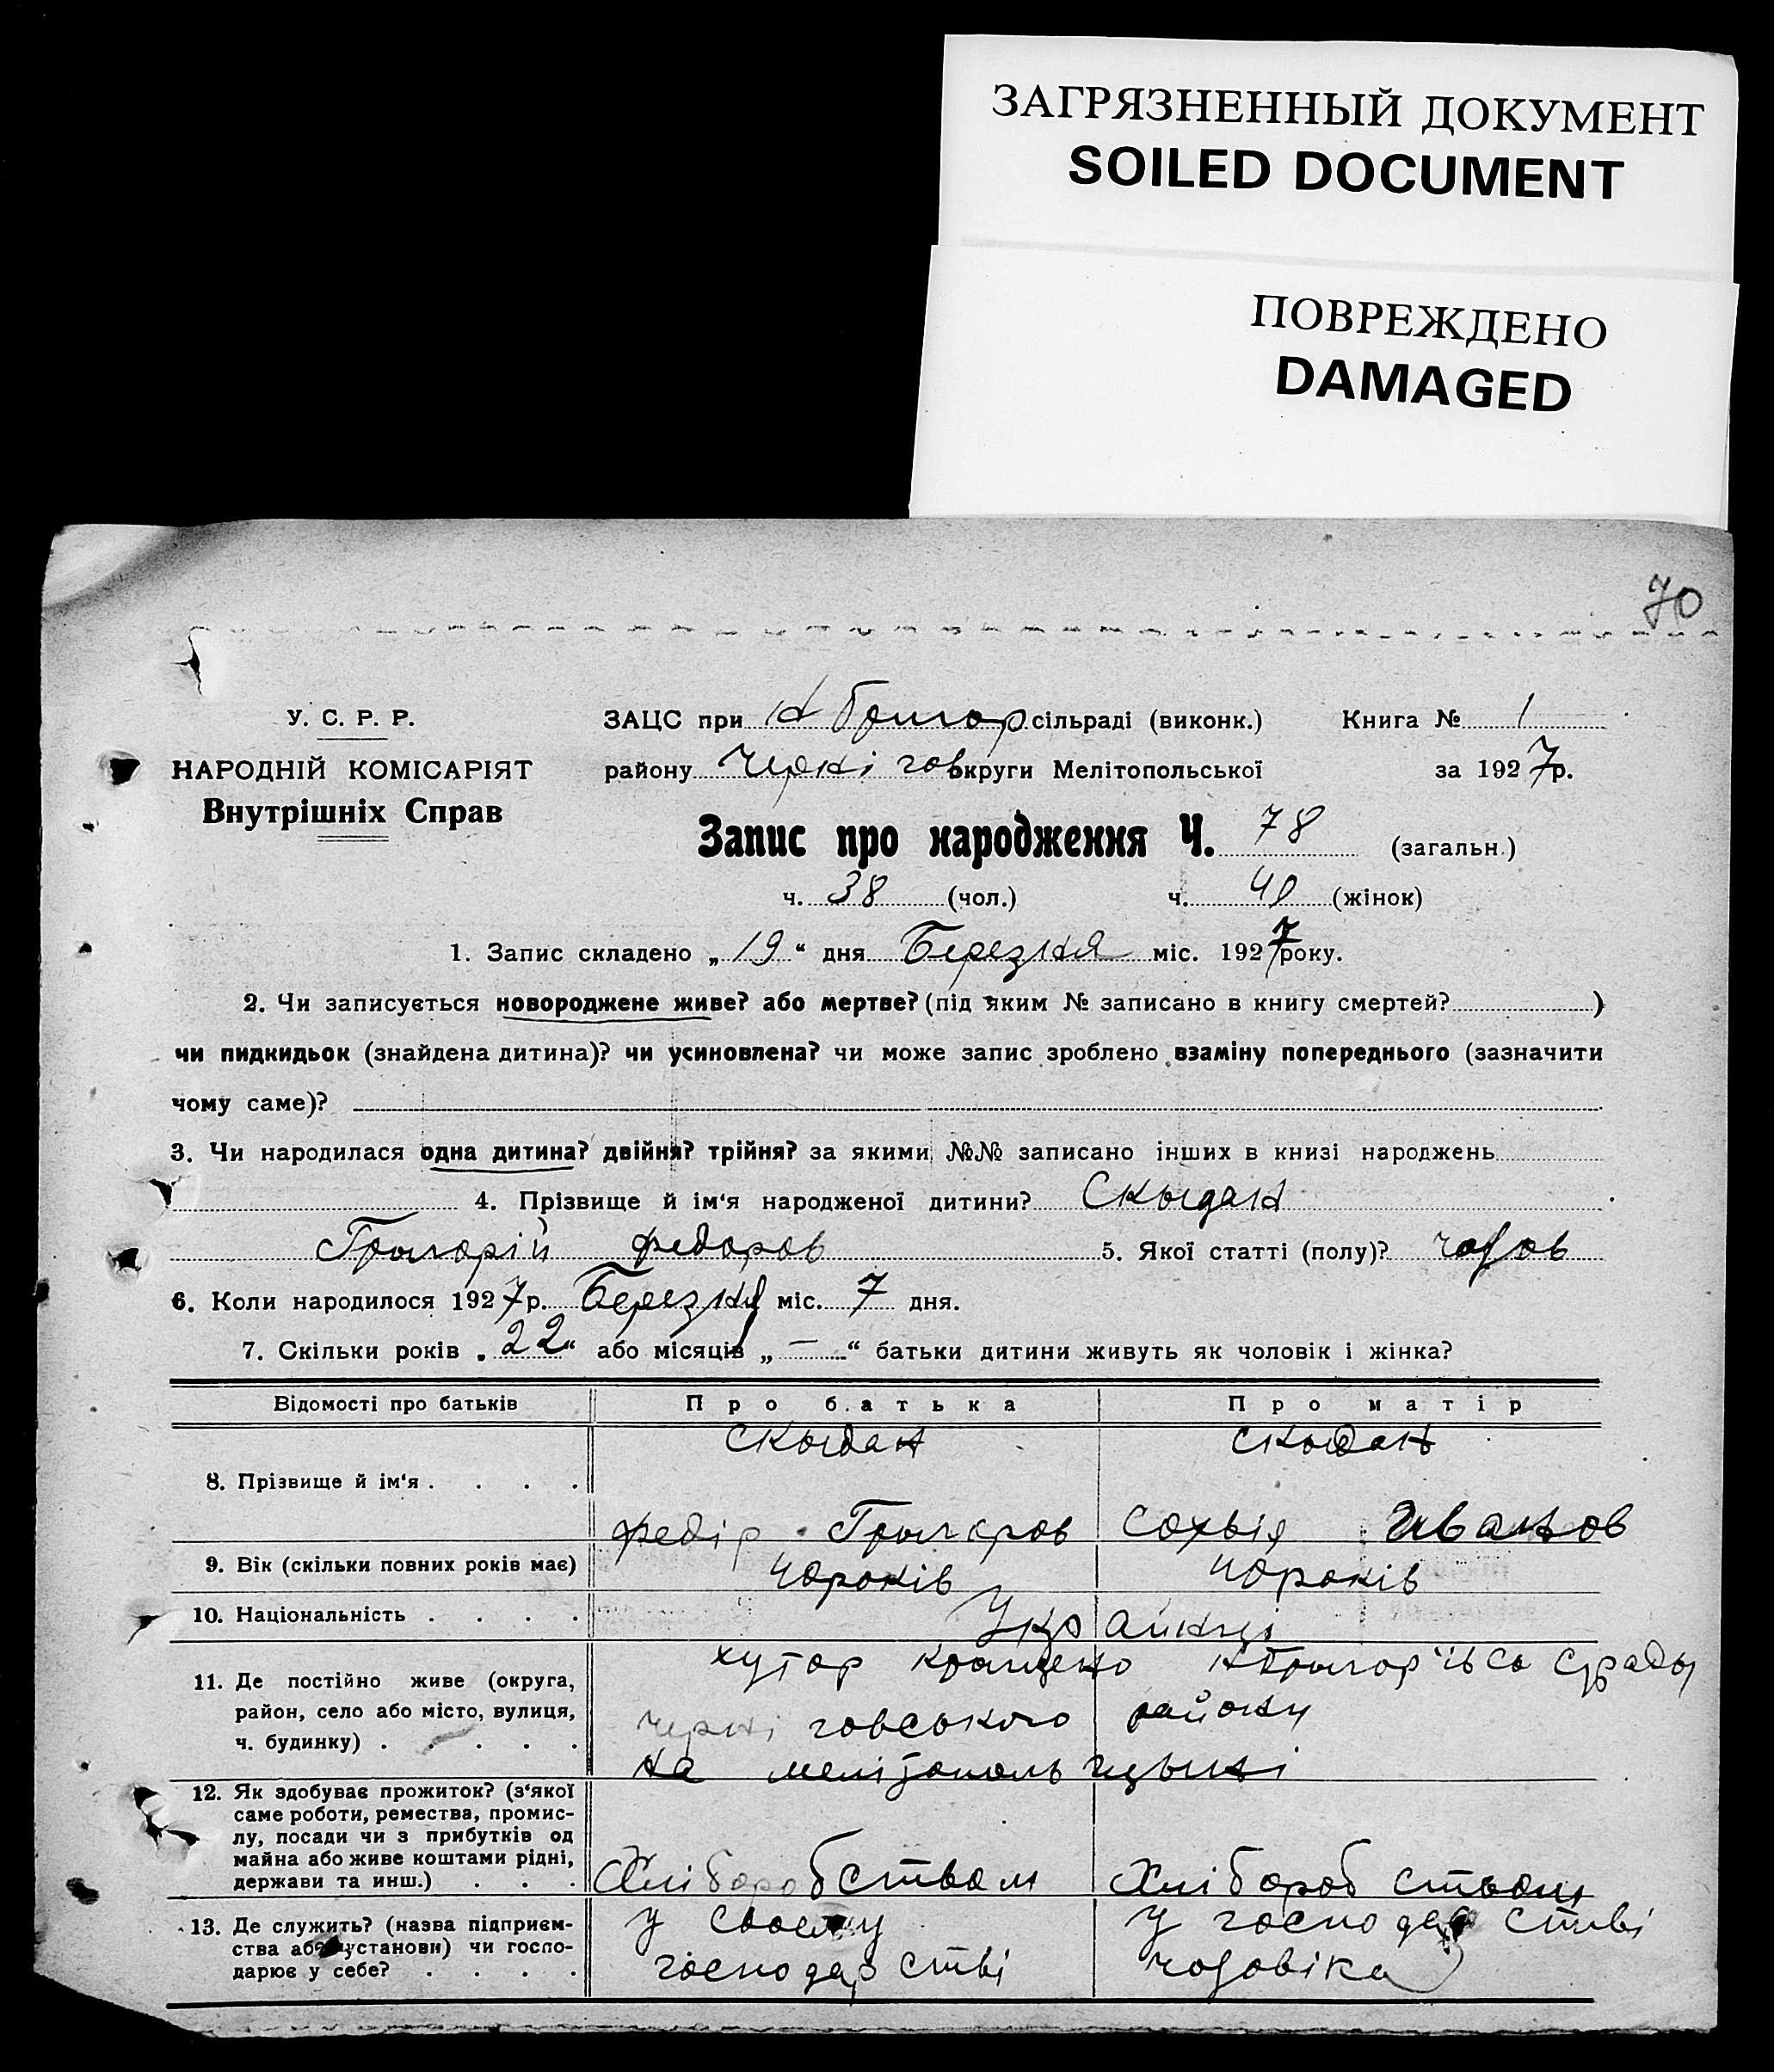 ЗАГРЯЗНЕННЫЙ ДОКУМЕНТ
SOILED DOCUMENT
ПОВРЕЖДЕНО
DAMAGED
70
У. С. Р. Р.
НАРОДНІЙ КОМІСАРІЯТ
Внутрішніх Справ
ЗАЦС при сільраді (виконк.) Книга № 1
району Черніговокруги Мелітопольської за 1927р.
Запис про народження Ч. 78 (загальн.)
ч. 38 (чол.) ч. 40 (жінок)
1. Запис складено „19“ дня Березня міс. 1927року.
2. Чи записується новороджене живе? або мертве? (під яким № записано в книгу смертей? )
чи пидкидьок (знайдена дитина)? чи усиновлена? чи може запис зроблено взаміну попереднього (зазначити
чому саме)?
3. Чи народилася одна дитина? двійня? трійня? за якими №№ записано інших в книзі народжень
4. Прізвище й ім‘я народженої дитини? Скыдан
Грыгорій Федоров 5. Якої статті (полу)? чолов
6. Коли народилося 1927р. Березня міс. 7 дня.
7. Скільки років „22“ або місяців „—“ батьки дитини живуть як чоловік і жінка?
Відомості про батьків Про батька Про матір
8. Прізвище й ім‘я . . . . Скыдан Скыдан
Федір Грыгоров Сохвія Иванов
9. Вік (скільки повних років має) 40років 40років
10. Національність . . . . Украинці
11. Де постійно живе (округа,
район, село або місто, вулиця,
ч. будинку) . . . . .
хутор
Черніговського району
на мелітопольщыні
12. Як здобуває прожиток? (з‘якої
саме роботи, ремества, промис-
лу, посади чи з прибутків од
майна або живе коштами рідні,
держави та инш.) . . .
Хліборобством Хліборобством
13. Де служить? (назва підприєм-
ства або установи) чи госпо-
дарює у себе? . . . .
у своему у господарстві
господарстві чоловіка